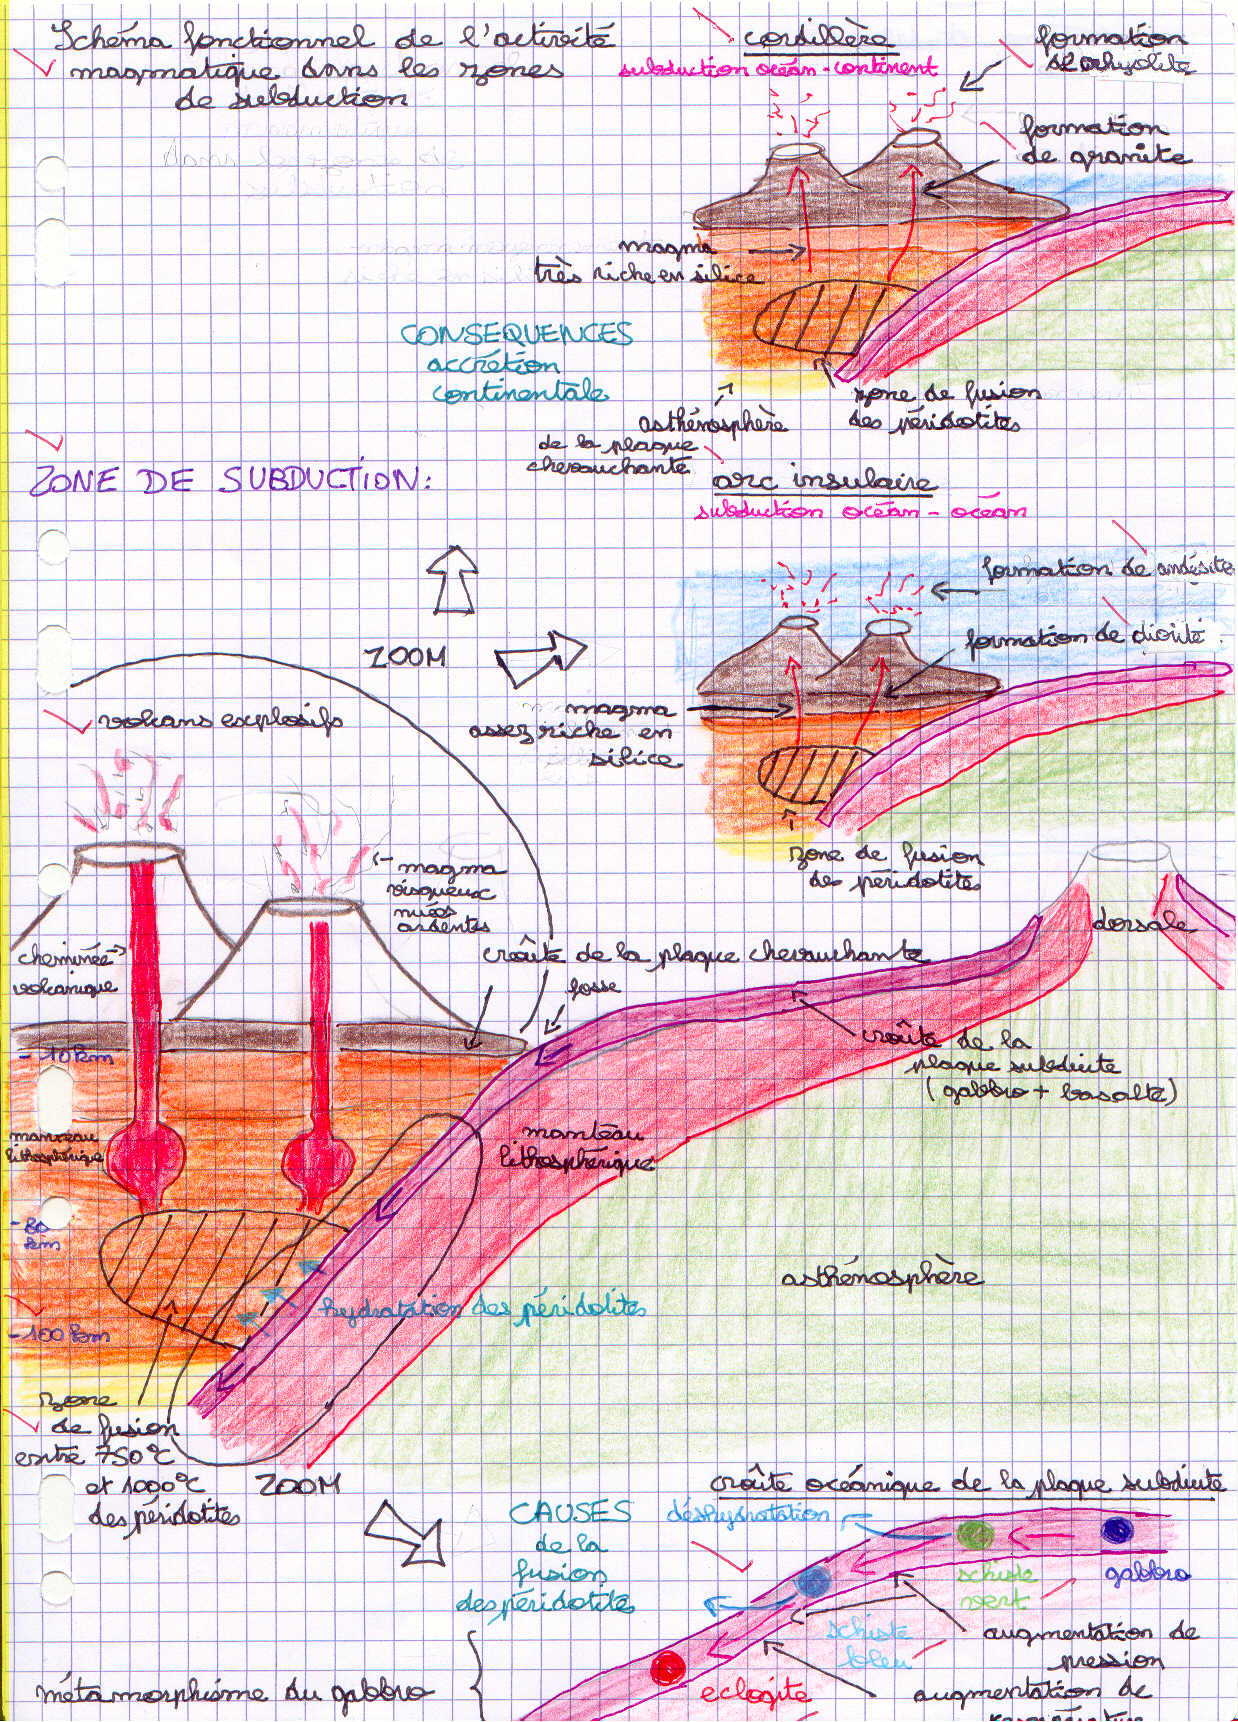 Schéma fonctionnel de l'activité
magmatique dans les zones
de subduction
cordillère
subduction océan-continent
formation
de rhyolite
formation
de granite
magma
très riche en silice
CONSEQUENCES
accrétion
continentale
zone de fusion
des péridotites
asthénosphère
de la plaque
chevauchante
ZONE DE SUBDUCTION:
arc insulaire
subduction océan - océan
formation de andésite
formation de diorite
ZOOM
magma
assez riche en
silice
zone de fusion
des péridotites
volcans explosifs
magma
visqueux
nuées
ardentes
cheminée
volcanique
croûte de la plaque chevauchante
fosse
dorsale
croûte de la
plaque subduite
(gabbro + basalte)
- 10 km
manteau
lithosphérique
manteau
lithosphérique
- 80
km
asthénosphère
hydratation des péridotites
- 100 km
zone
de fusion
entre 750°C
et 1000°C
des péridotites
ZOOM
CAUSES
de la
fusion
des péridotite
croûte océanique de la plaque subduite
déshydratation
schiste
vert
gabbro
schiste
bleu
augmentation de
pression
métamorphisme du gabbro
eclogite
augmentation de